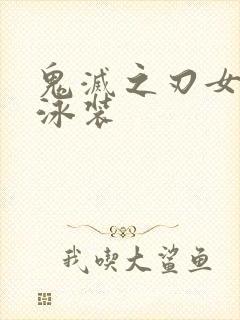 鬼滅之刃女
泳装
我喫大鯊鱼